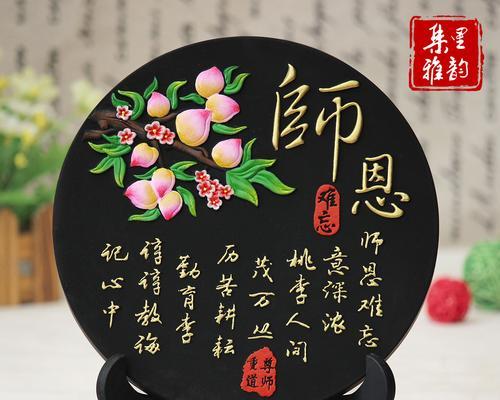 師恩
难忘
师恩难忘
意深浓
桃李人间
茂万丛
历苦耕耘
勤育李
谆谆教诲
记心中
尊师
重道
韵
集雅